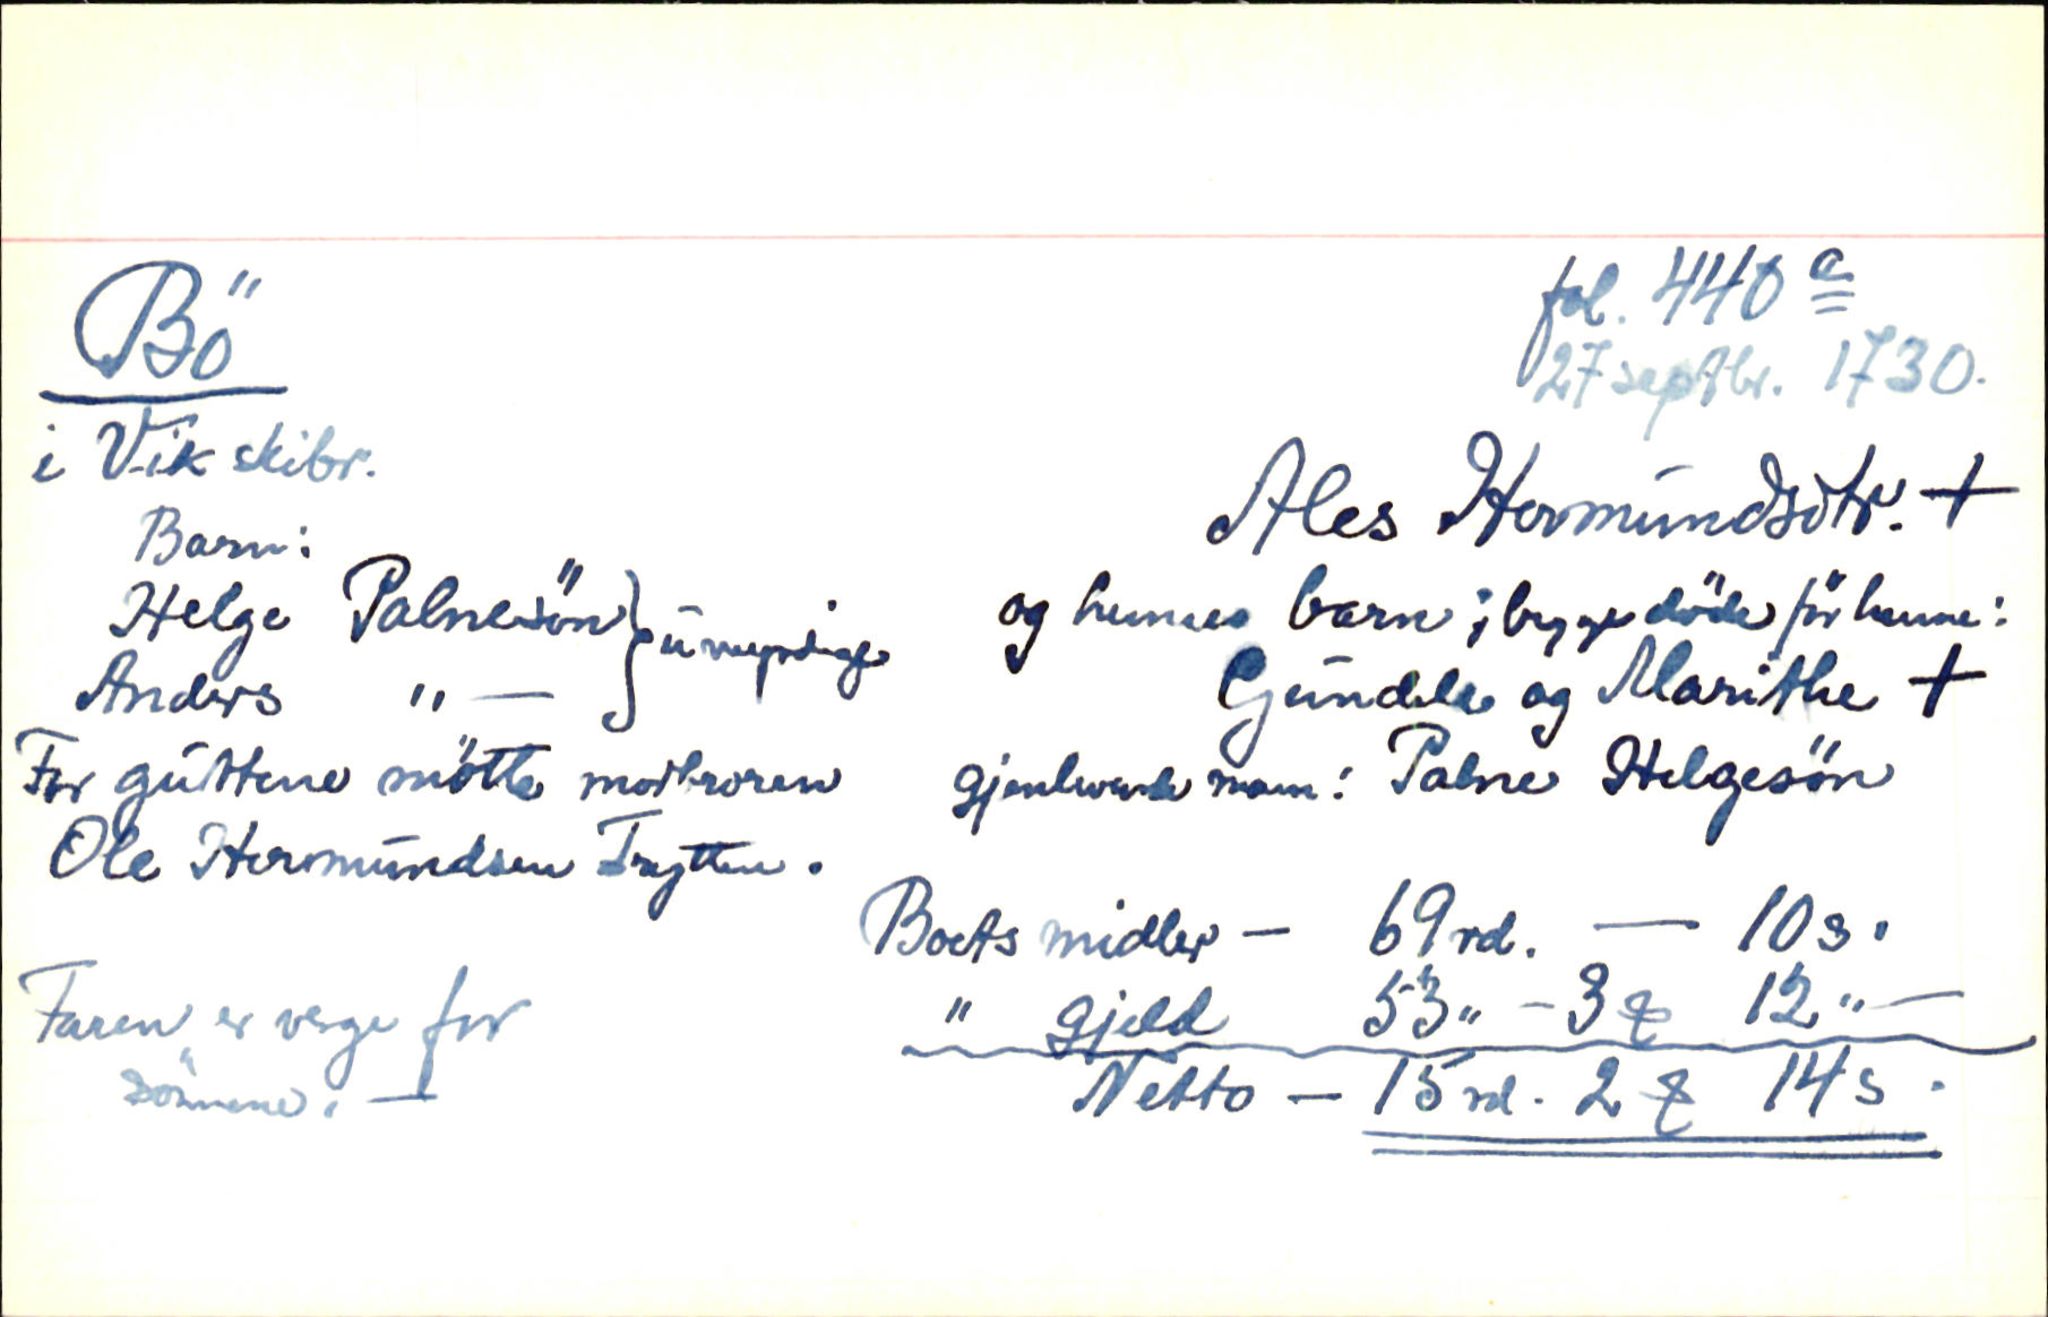 Bö
i Vik skibr.
Barn:
Helge Palnesön } umyndige
Anders " —
For guttene mötte morbroren
Ole Hermundsen Trytten.
Faren er verge for
sönnene. —
fol. 440 a
27 septbr. 1730.
Ales Hermundsdtr. +
og hennes barn; begge döde för henne:
Gundele og Marithe +
gjenlevende mann: Palne Helgesön
Boets midler — 69 rd. — 10 s.
" gjeld 53 " - 3 12 " —
Netto — 15 rd. 2 14 s.